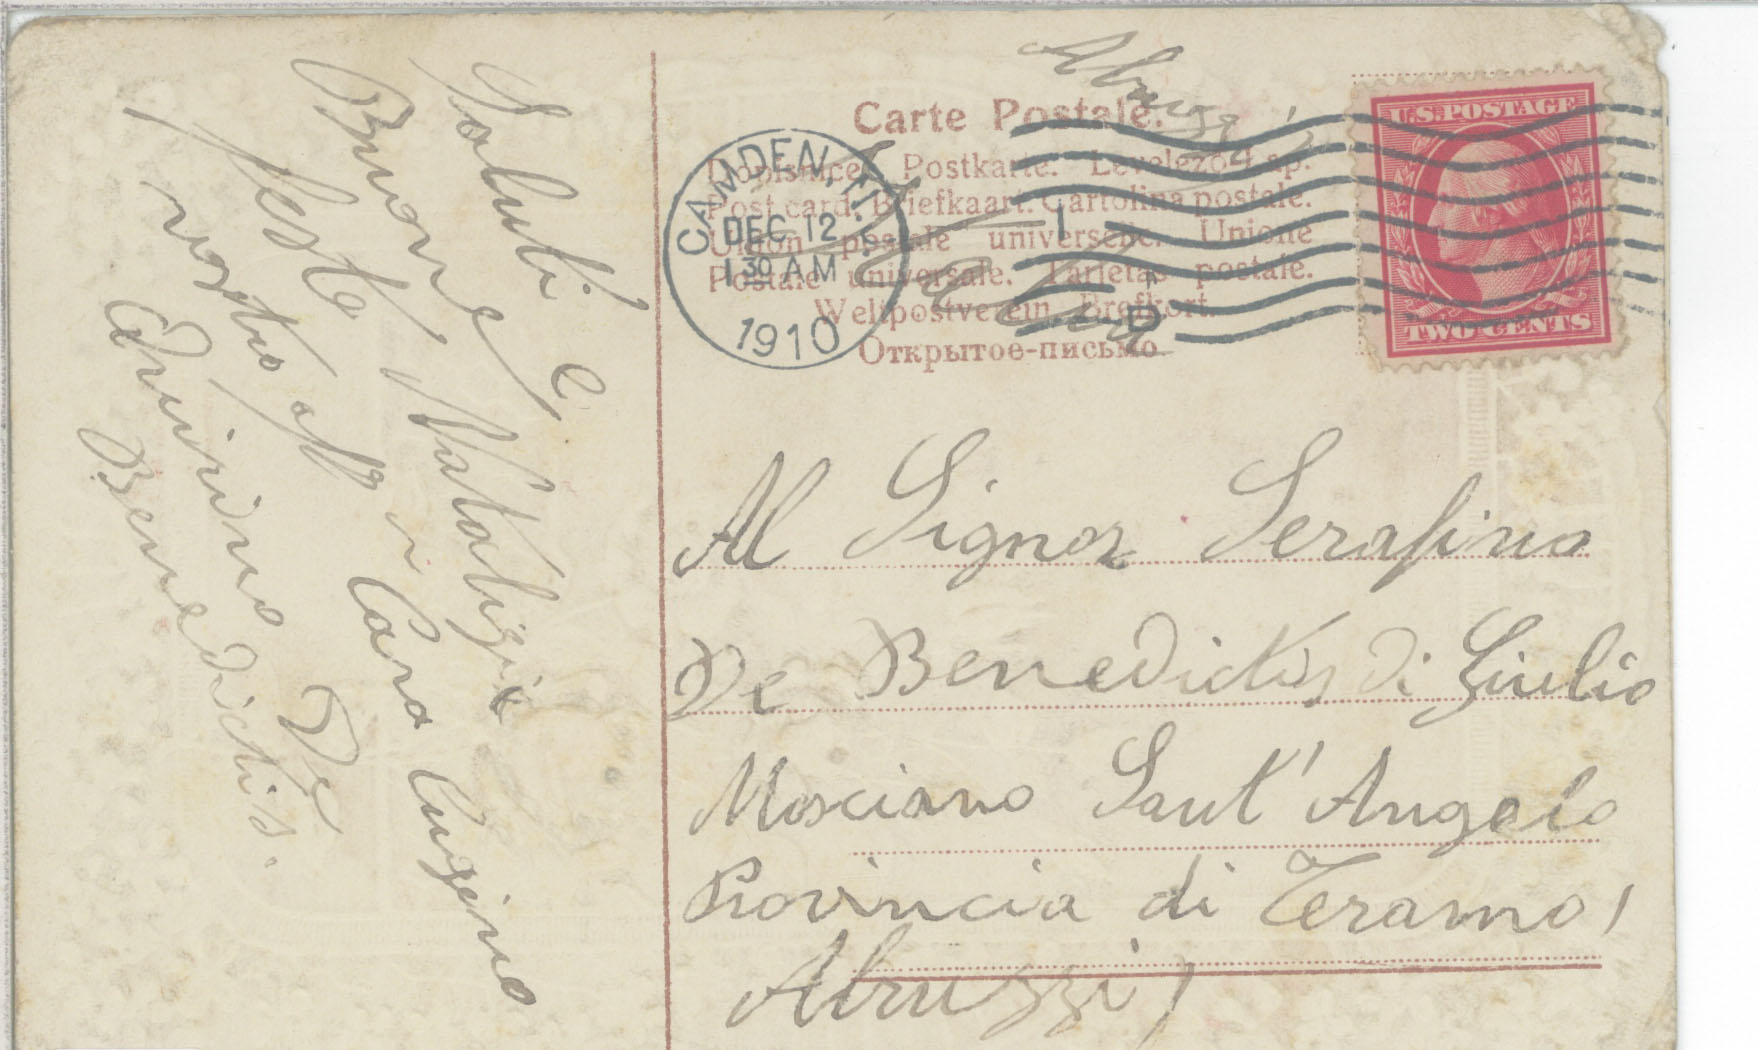 Saluti e
Buone Natalizie
feste
vostro aff Caro Cugino
Quirino De
Benedictis.
Abruzzi
Carte Postale.
Dopisnice. Postkarte. Levelező-Lap.
Post card. Briefkaart. Cartolina postale.
Union postale universelle. Unione
Postale universale. Tarjetas postale.
Weltpostverein. Brefkort.
Открытое-письмо
CAMDEN, N.J.
DEC 12
1 30 AM
1910
1
U.S. POSTAGE
TWO CENTS
Al Signor Serafino
De Benedictis di Giulio
Mosciano Sant'Angelo
Provincia di Teramo,
Abruzzi,